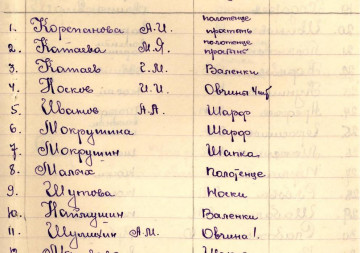 1. Корепанова А.И. полотенце простынь
2. Катаева М.Я. полотенце простынь
3. Катаев С.М. Валенки
4. Носков И.И. Овчина 4шт
5. Иванов А.А. Шарф
6. Мокрушина Шарф
7. Мокрушин Шапка.
8. Малых Полотенце
9. Шутова Носки
10. Наймушин Валенки
11. Шулихин А.М. Овчина 1.
12.